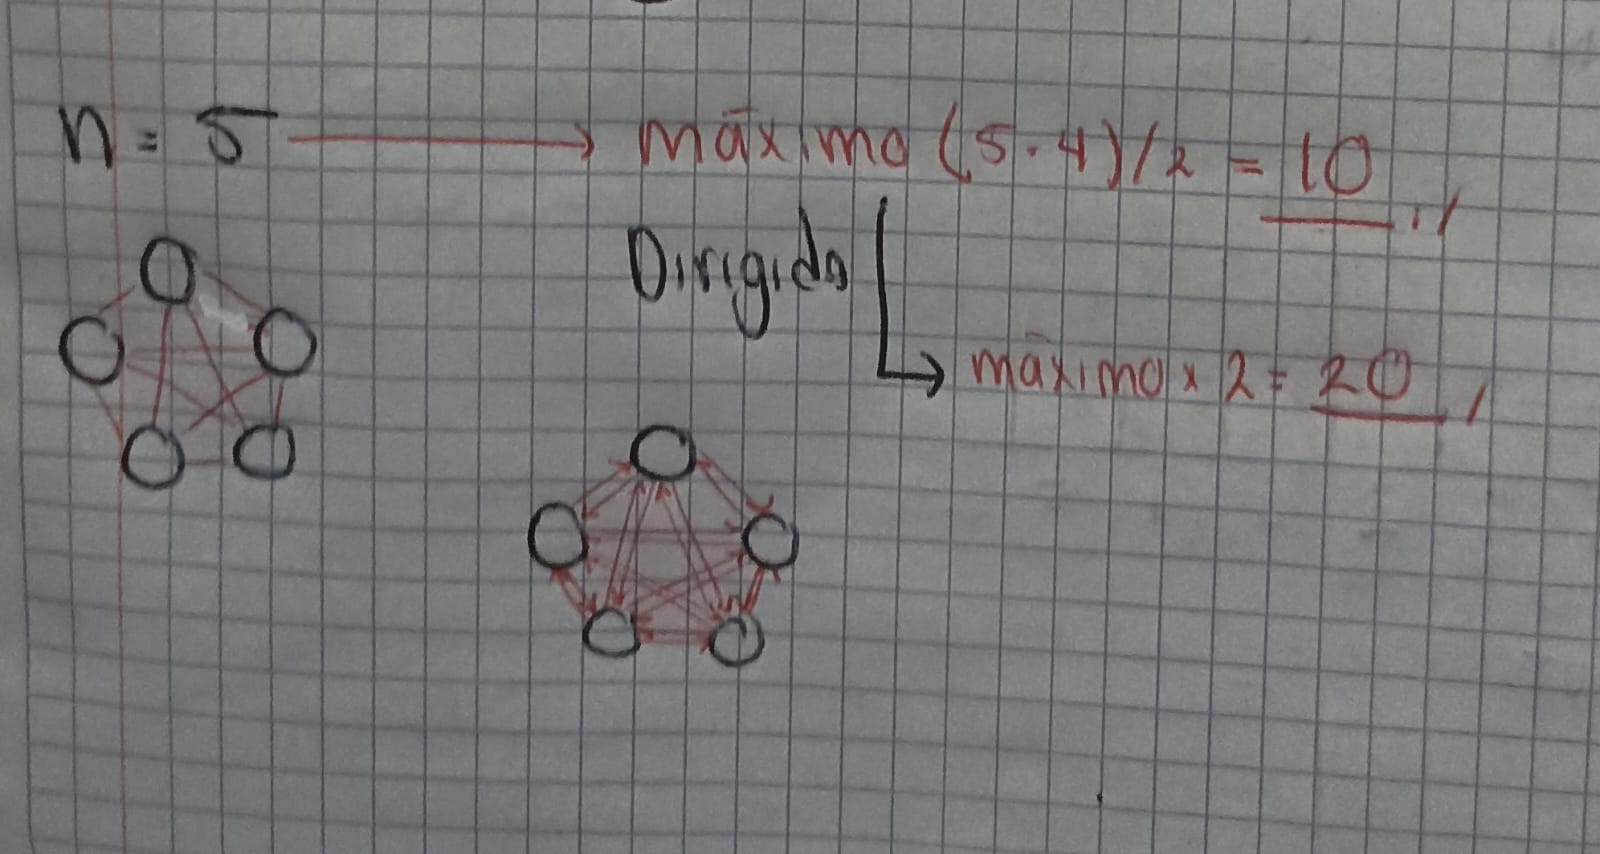 n = 5 → máximo (5·4)/2 = 10
Dirigido
máximo x 2 = 20